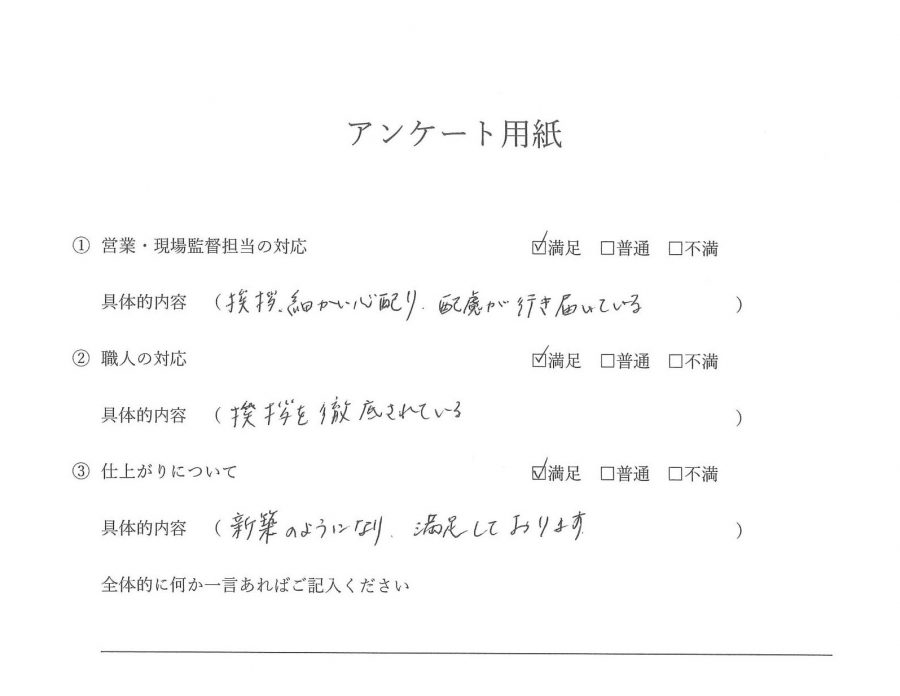 アンケート用紙
① 営業・現場監督担当の対応 ☑満足 □普通 □不満
具体的内容 （挨拶、細かい心配り、配慮が行き届いている）
② 職人の対応 ☑満足 □普通 □不満
具体的内容 （挨拶を徹底されている）
③ 仕上がりについて ☑満足 □普通 □不満
具体的内容 （新築のようになり、満足しております）
全体的に何か一言あればご記入ください